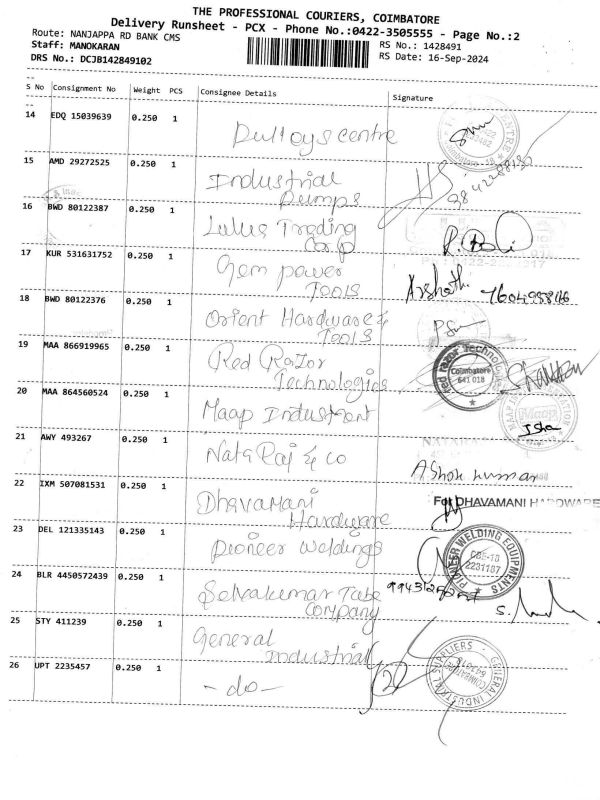 THE PROFESSIONAL COURIERS, COIMBATORE
Delivery Runsheet - PCX - Phone No.:0422-3505555 - Page No.:2
Route: NANJAPPA RD BANK CMS
RS No.: 1428491
Staff: MANOKARAN
RS Date: 16-Sep-2024
DRS No.: DCJB142849102
S No Consignment No Weight PCS Consignee Details Signature
14 EDQ 15039639 0.250 1
15 AMD 29272525 0.250 1 Industrial
Pumps
16 BWD 80122387 0.250 1 Lulus Trading
Corp
17 KUR 531631752 0.250 1 Gem power
Tools
Arshath
18 BWD 80122376 0.250 1 Orient Hardware &
Tools
19 MAA 866919965 0.250 1 Red Razor
Technologies
Red Razor Technologies
Coimbatore
641 018
20 MAA 864560524 0.250 1 Maap
Maap
Isha
21 AWY 493267 0.250 1 Nata Raj & co
Ashok kumar
22 IXM 507081531 0.250 1 Dhavamani
Hardware
For DHAVAMANI HARDWARE
23 DEL 121335143 0.250 1 Pioneer Weldings
PIONEER WELDING EQUIPMENTS
CBE-18
2231187
24 BLR 4450572439 0.250 1 Selvakumar Tube
Company
25 STY 411239 0.250 1 General
Industrial
GENERAL INDUSTRIAL SUPPLIERS
COIMBATORE
26 UPT 2235457 0.250 1 - do -